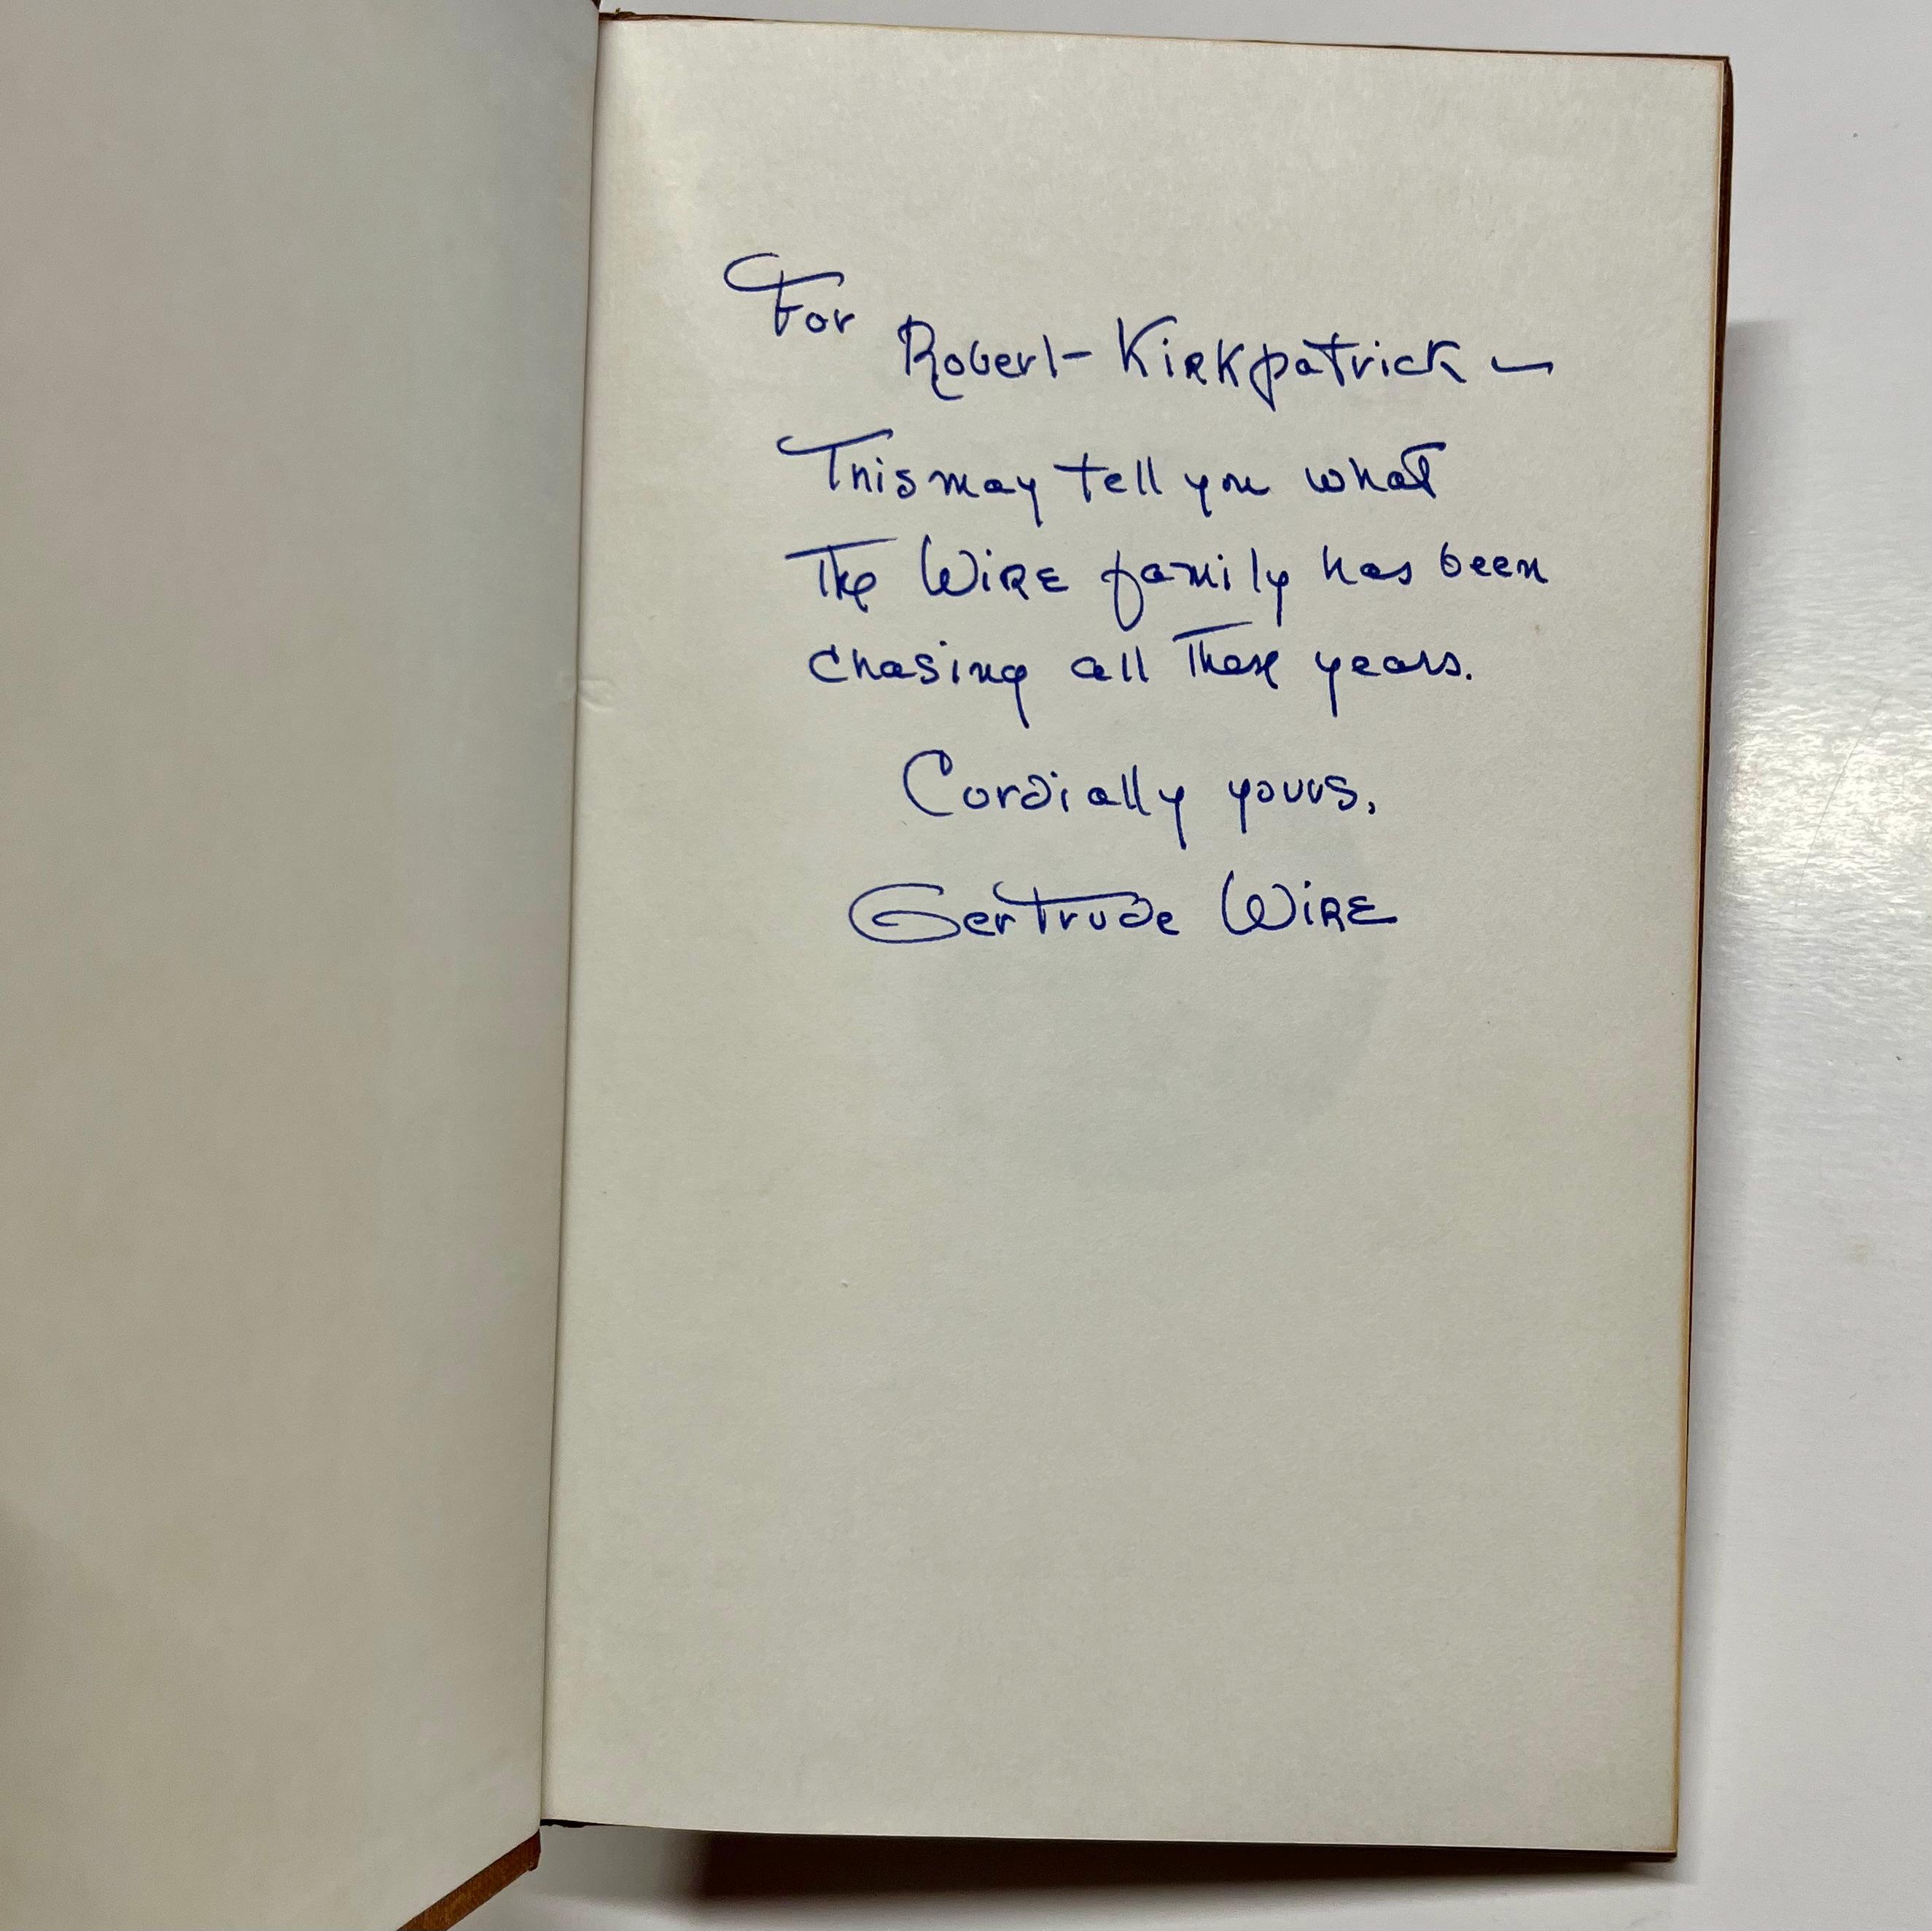 For
Robert Kirkpatrick —
This may tell you what
The Wire family has been
chasing all These years.
Cordially yours,
Gertrude Wire